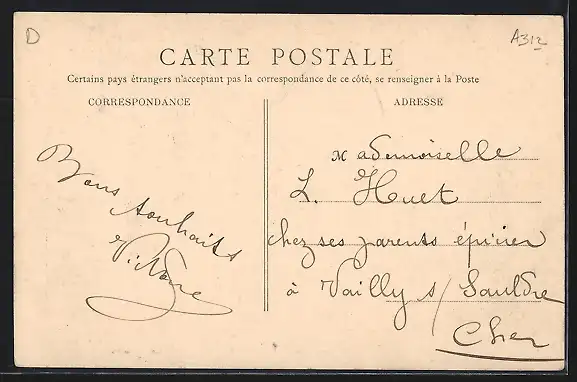 D
A312
CARTE POSTALE
Certains pays étrangers n'acceptant pas la correspondance de ce côté, se renseigner à la Poste
CORRESPONDANCE
ADRESSE
Bons souhaits
Victorine
Mademoiselle
L. Huet
chez ses parents épicier
à Vailly s/ Sauldre
Cher